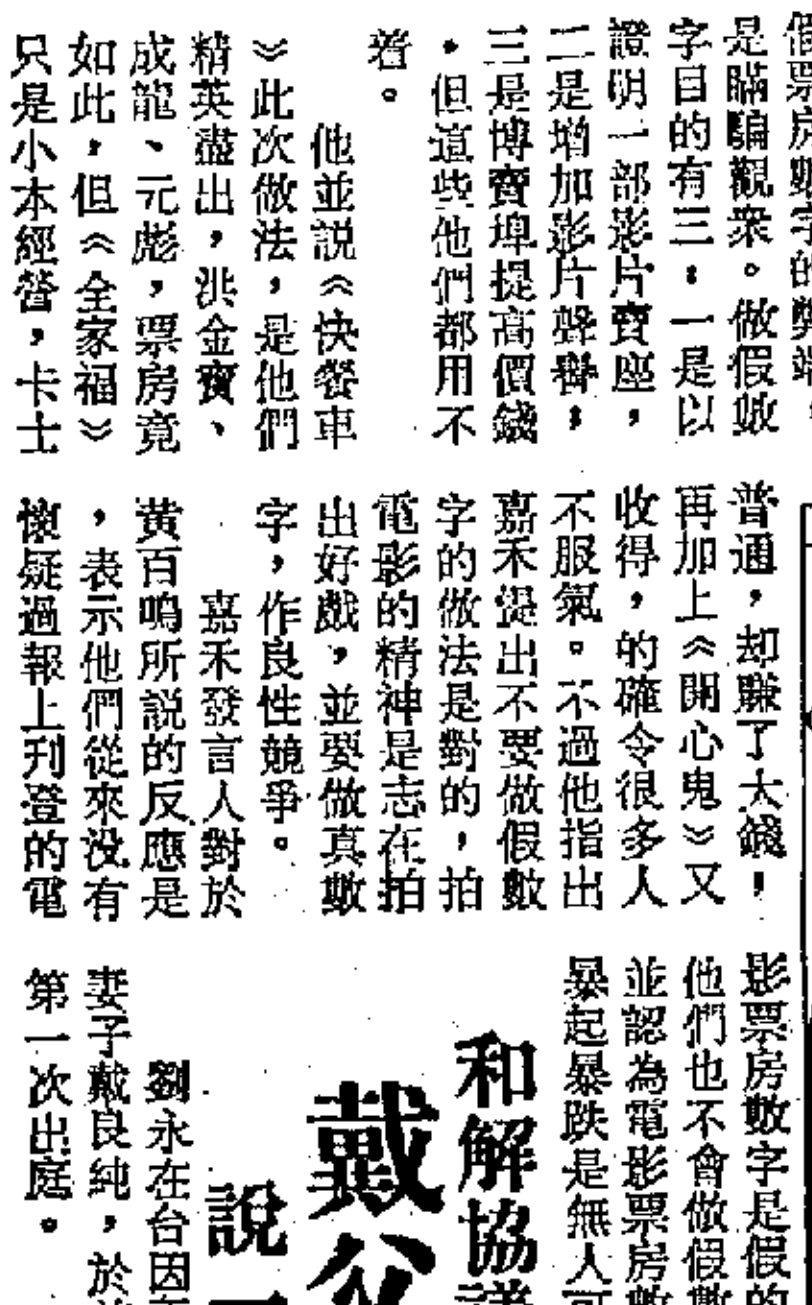 假票房數字的弊端，
是瞞騙觀衆。做假數
字目的有三：一是以
證明一部影片賣座，
二是增加影片聲譽，
三是博賣埠提高價錢
，但這些他們都用不
着。
他並説《快餐車
》此次做法，是他們
精英盡出，洪金寳、
成龍、元彪，票房竟
如此，但《全家福》
只是小本經營，卡士
普通，却賺了大錢，
再加上《開心鬼》又
收得，的確令很多人
不服氣。不過他指出
嘉禾提出不要做假數
字的做法是對的，拍
電影的精神是志在拍
出好戲，並要做真數
字，作良性競爭。
嘉禾發言人對於
黄百鳴所説的反應是
，表示他們從來没有
懷疑過報上刋登的電
影票房數字是假的
他們也不會做假數
並認為電影票房數
暴起暴跌是無人可
和解協議
戴父
說
劉永在台因
妻子戴良純，於
第一次出庭。